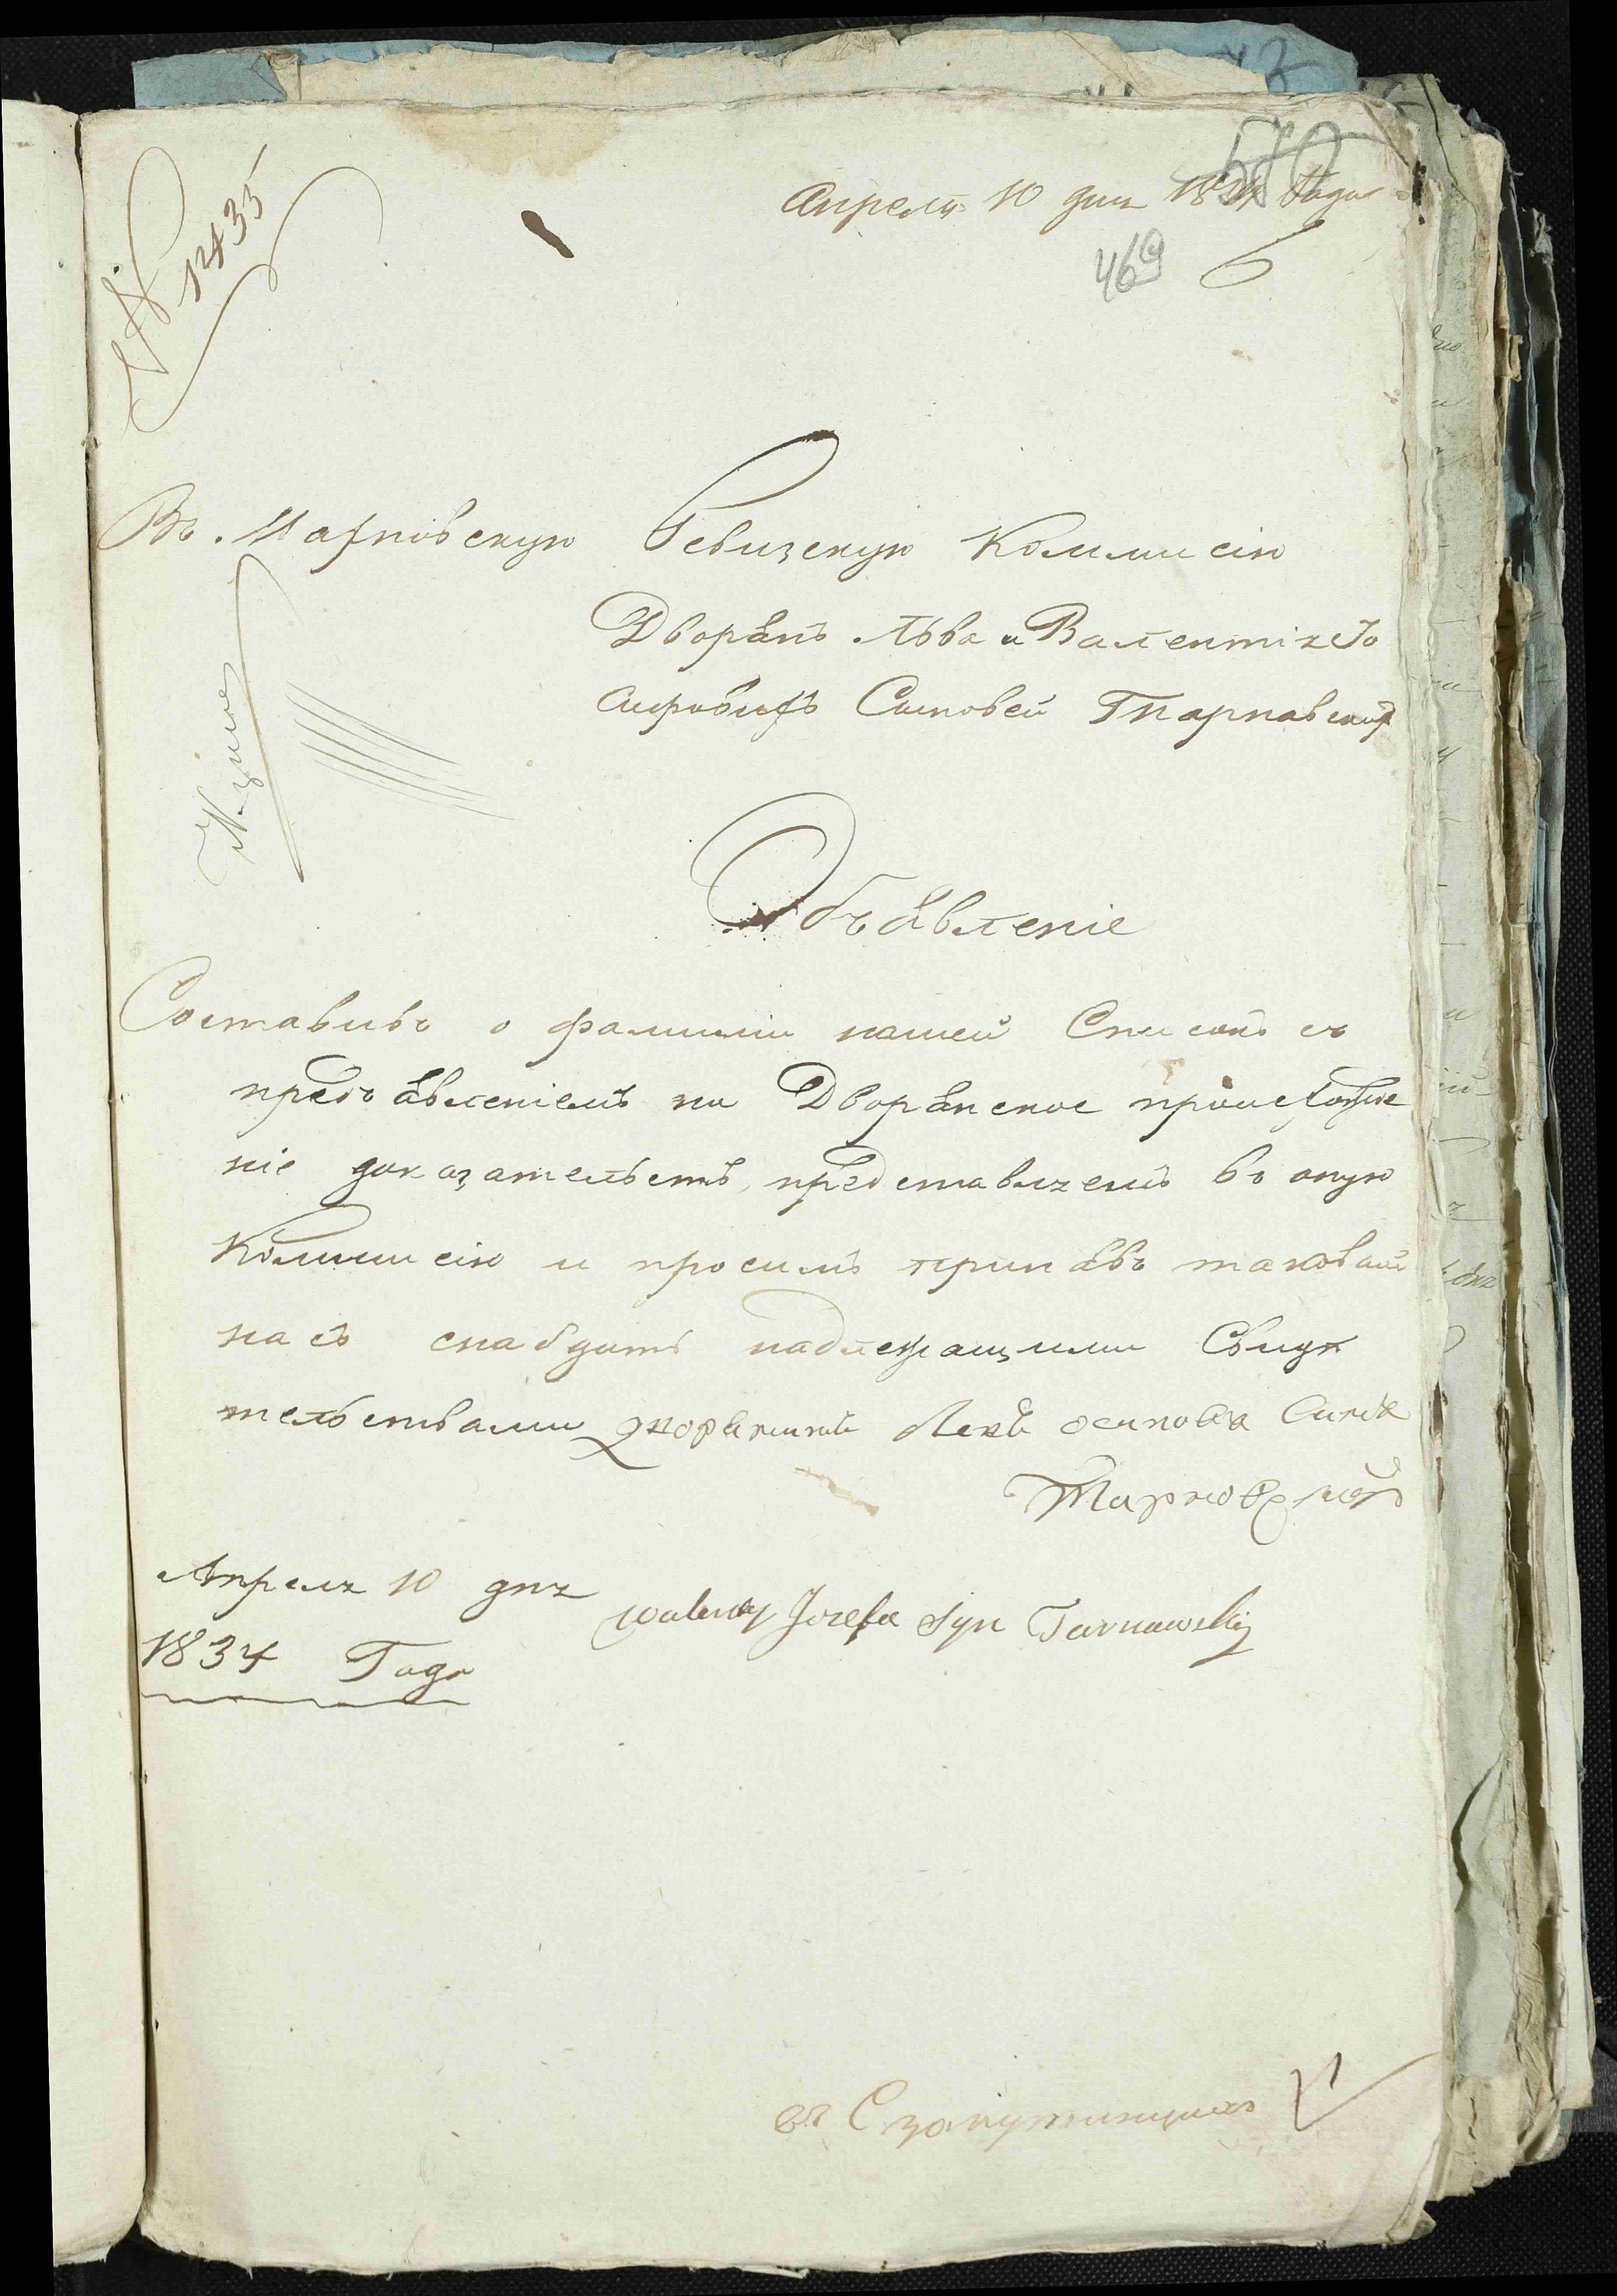 № 12435
580
Апреля 10 дня 1834 Года
469
6
Въ Махновскую Ревизскую Коммисію
Дворянъ Льва и Валентія Іо
сифовыхъ Сыновей Тарнавскихъ
Объявленіе
Составивъ о фамиліи нашей Списокъ съ
предъявленіемъ на Дворянское происхожде
ніе доказательствъ, представляемъ въ оную
Коммисію и просимъ принявъ таковый
насъ снабдить надлежащими Свиде
тельствами дворянинъ Левъ осипова Сынъ
Тарновскій
Апреля 10 дня
1834 Года
Jozefa Syn Tarnawskij